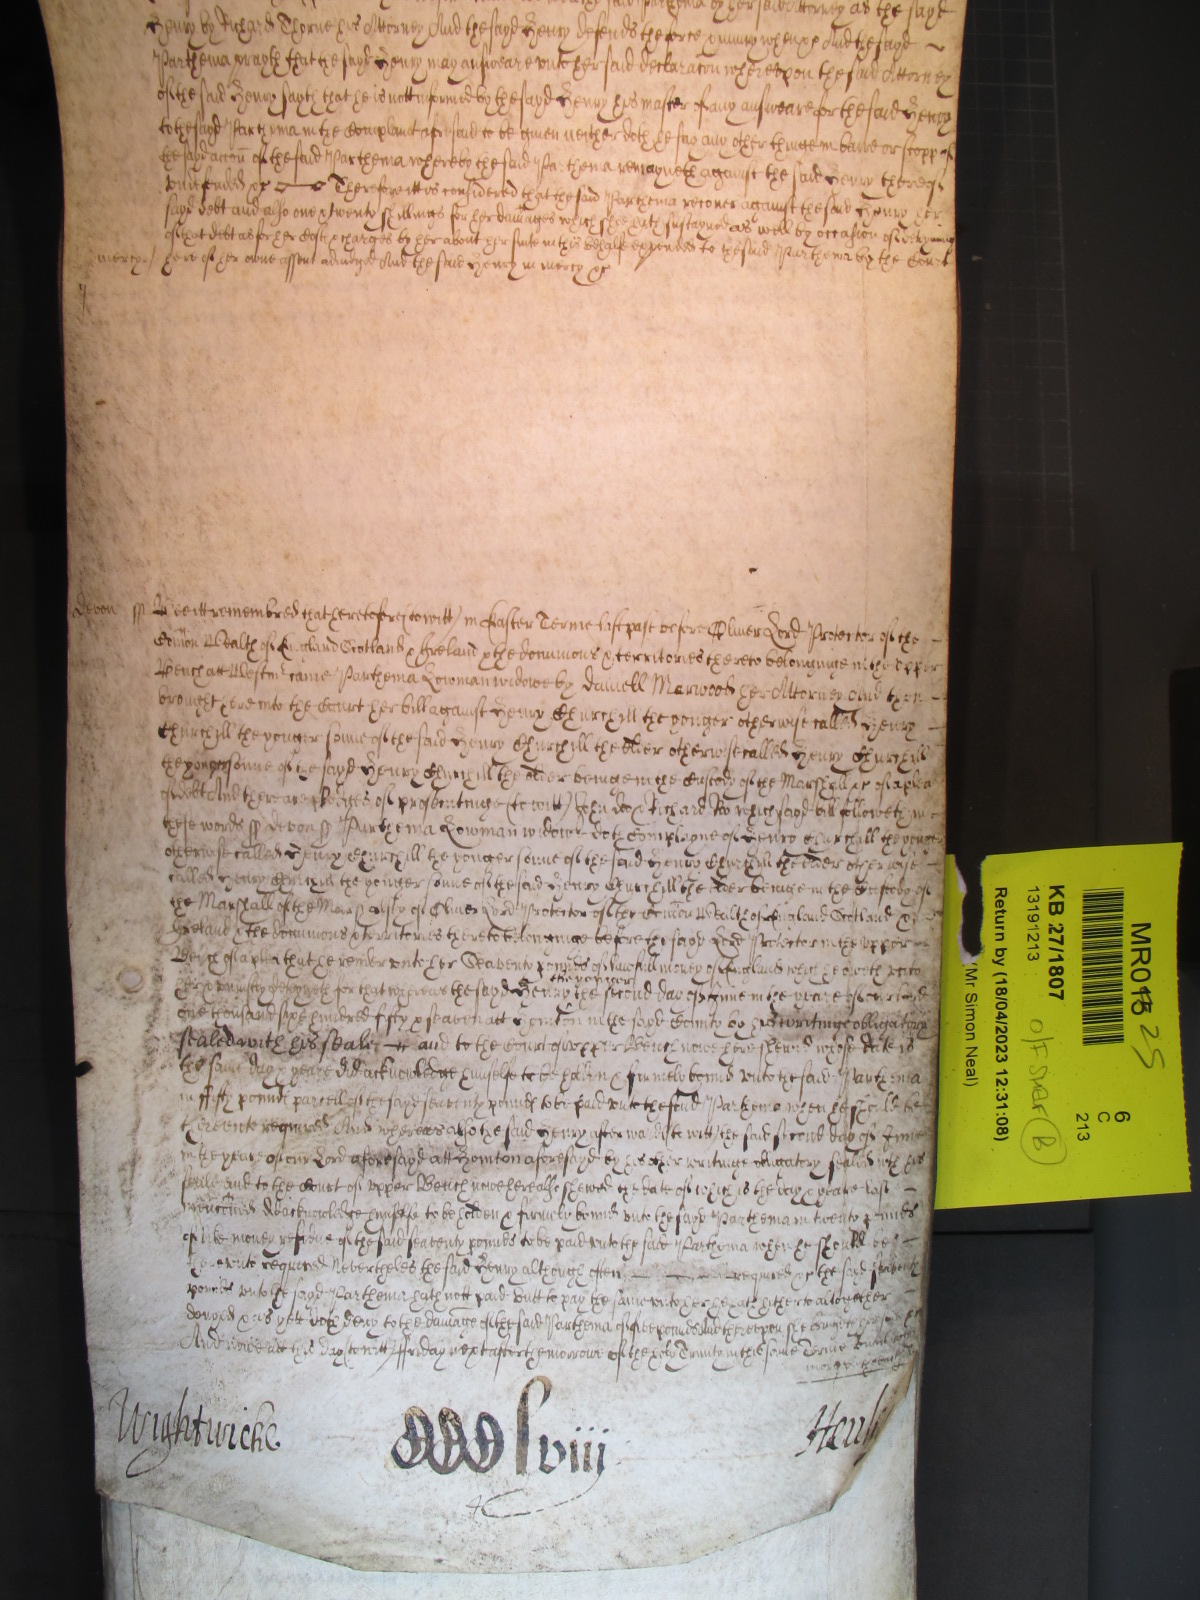 said Parthema by her said Attorney as the sayd
Henry by Richard Thorne his Attorney And the sayd Henry defends the force & iniury when &c And the sayd
Parthema prayth that the sayd Henry may answeare unto her said declaracon whereupon the said Attorney
of the said Henry sayth that he is nott informed by the sayd Henry his master of any answeare for the said Henry
to the sayd Parthema in the Complaint aforesaid to be given neither doth he say any other thinge in barre or stopp of
the sayd accon of the said Parthema whereby the said Parthema remayneth against the said Henry thereof
undefended &c Therefore itt is considered that the said Parthema recover against the said Henry her
sayd debt and also one & twenty shillings for her damages which she hath sustayned as well by occasion of deteyning
of that debt as for her Costs & charges by her about her suite in this behalfe expended to the said Parthema by the Court
mercy / here of her owne assent adiudged And the said Henry in mercy &c
Devon ss Bee itt remembred that heretofore (to witt) in Easter Terme last past before Oliver Lord Protector of the
Comon Wealth of England Scotland & Ireland & the dominions & territories thereto belonginge in the upper
Bench att Westm came Parthema Lowman widowe by Daniell Marwood her Attorney And then
brought here into the Court her bill against Henry Churchill the yonger otherwise called Henry
Churchill the yonger sonne of the said Henry Churchill the elder otherwise called Henry Churchill
the yonger sonne of the sayd Henry Churchill the elder beinge in the Custody of the Marshall &c of a plea
of debt And there are pledges of prosecutinge (to witt) John Doe & Richard Roe which said bill followeth in
these words ss Devon ss Parthema Lowman widowe doth Complayne of Henry Churchill the yonger
otherwise called Henry Churchill the yonger sonne of the said Henry Churchill the elder otherwise
called Henry Churchill the yonger sonne of the said Henry Churchill the elder beinge in the Custody of
the Marshall of the Marshalsey of Oliver Lord Protector of the Comon Wealth of England Scotland &
Ireland & the dominions & territories thereto belonginge before the sayd Lord Protector in the upper
Bench of a plea that he render unto her Seaventy pounds of lawfull money of England which he oweth unto
her & uniustly deteyneth for that whereas the sayd Henry the yonger the second day of June in the yeare of our Lord
one thousand sixe hundred fifty & seaven att Honiton in the sayd County by his writinge obligatory
sealed with his seale and to the Court of upper Bench nowe here shewed whose date is
the same day & yeare did acknowledge himselfe to be holden & firmely bound unto the said Parthema
in fifty pounds parcell of the sayd seaventy pounds to be paid unto the said Parthema when he should bee
thereunto required And whereas also the said Henry afterwards to witt the said second day of June
in the yeare of our Lord aforesayd att Honiton aforesayd by his other writinge obligatory sealed with his
seale and to the Court of upper Bench nowe here also shewed the date of which is the day & yeare last
mencioned did acknowledge himselfe to be holden & firmely bound unto the sayd Parthema in twenty pounds
of like money residue of the said seaventy pounds to be paid unto the said Parthema when he should bee
thereunto required Nevertheles the said Henry although often required &c the said seaventy
pounds unto the sayd Parthema hath nott paid butt to pay the same unto her he hath hitherto altogether
denyed & as yett doth deny to the damage of the said Parthema of five pounds And thereupon she brought her suite &c
And nowe att this day (to witt) Friday next after the morrowe of the holy Trinity in this same Terme
Wightwicke
lviii
MR016 25
6
C
213
KB 27/1807
13191213
O/F Shelf B
Return by (18/04/2023 12:31:08)
(Mr Simon Neal)